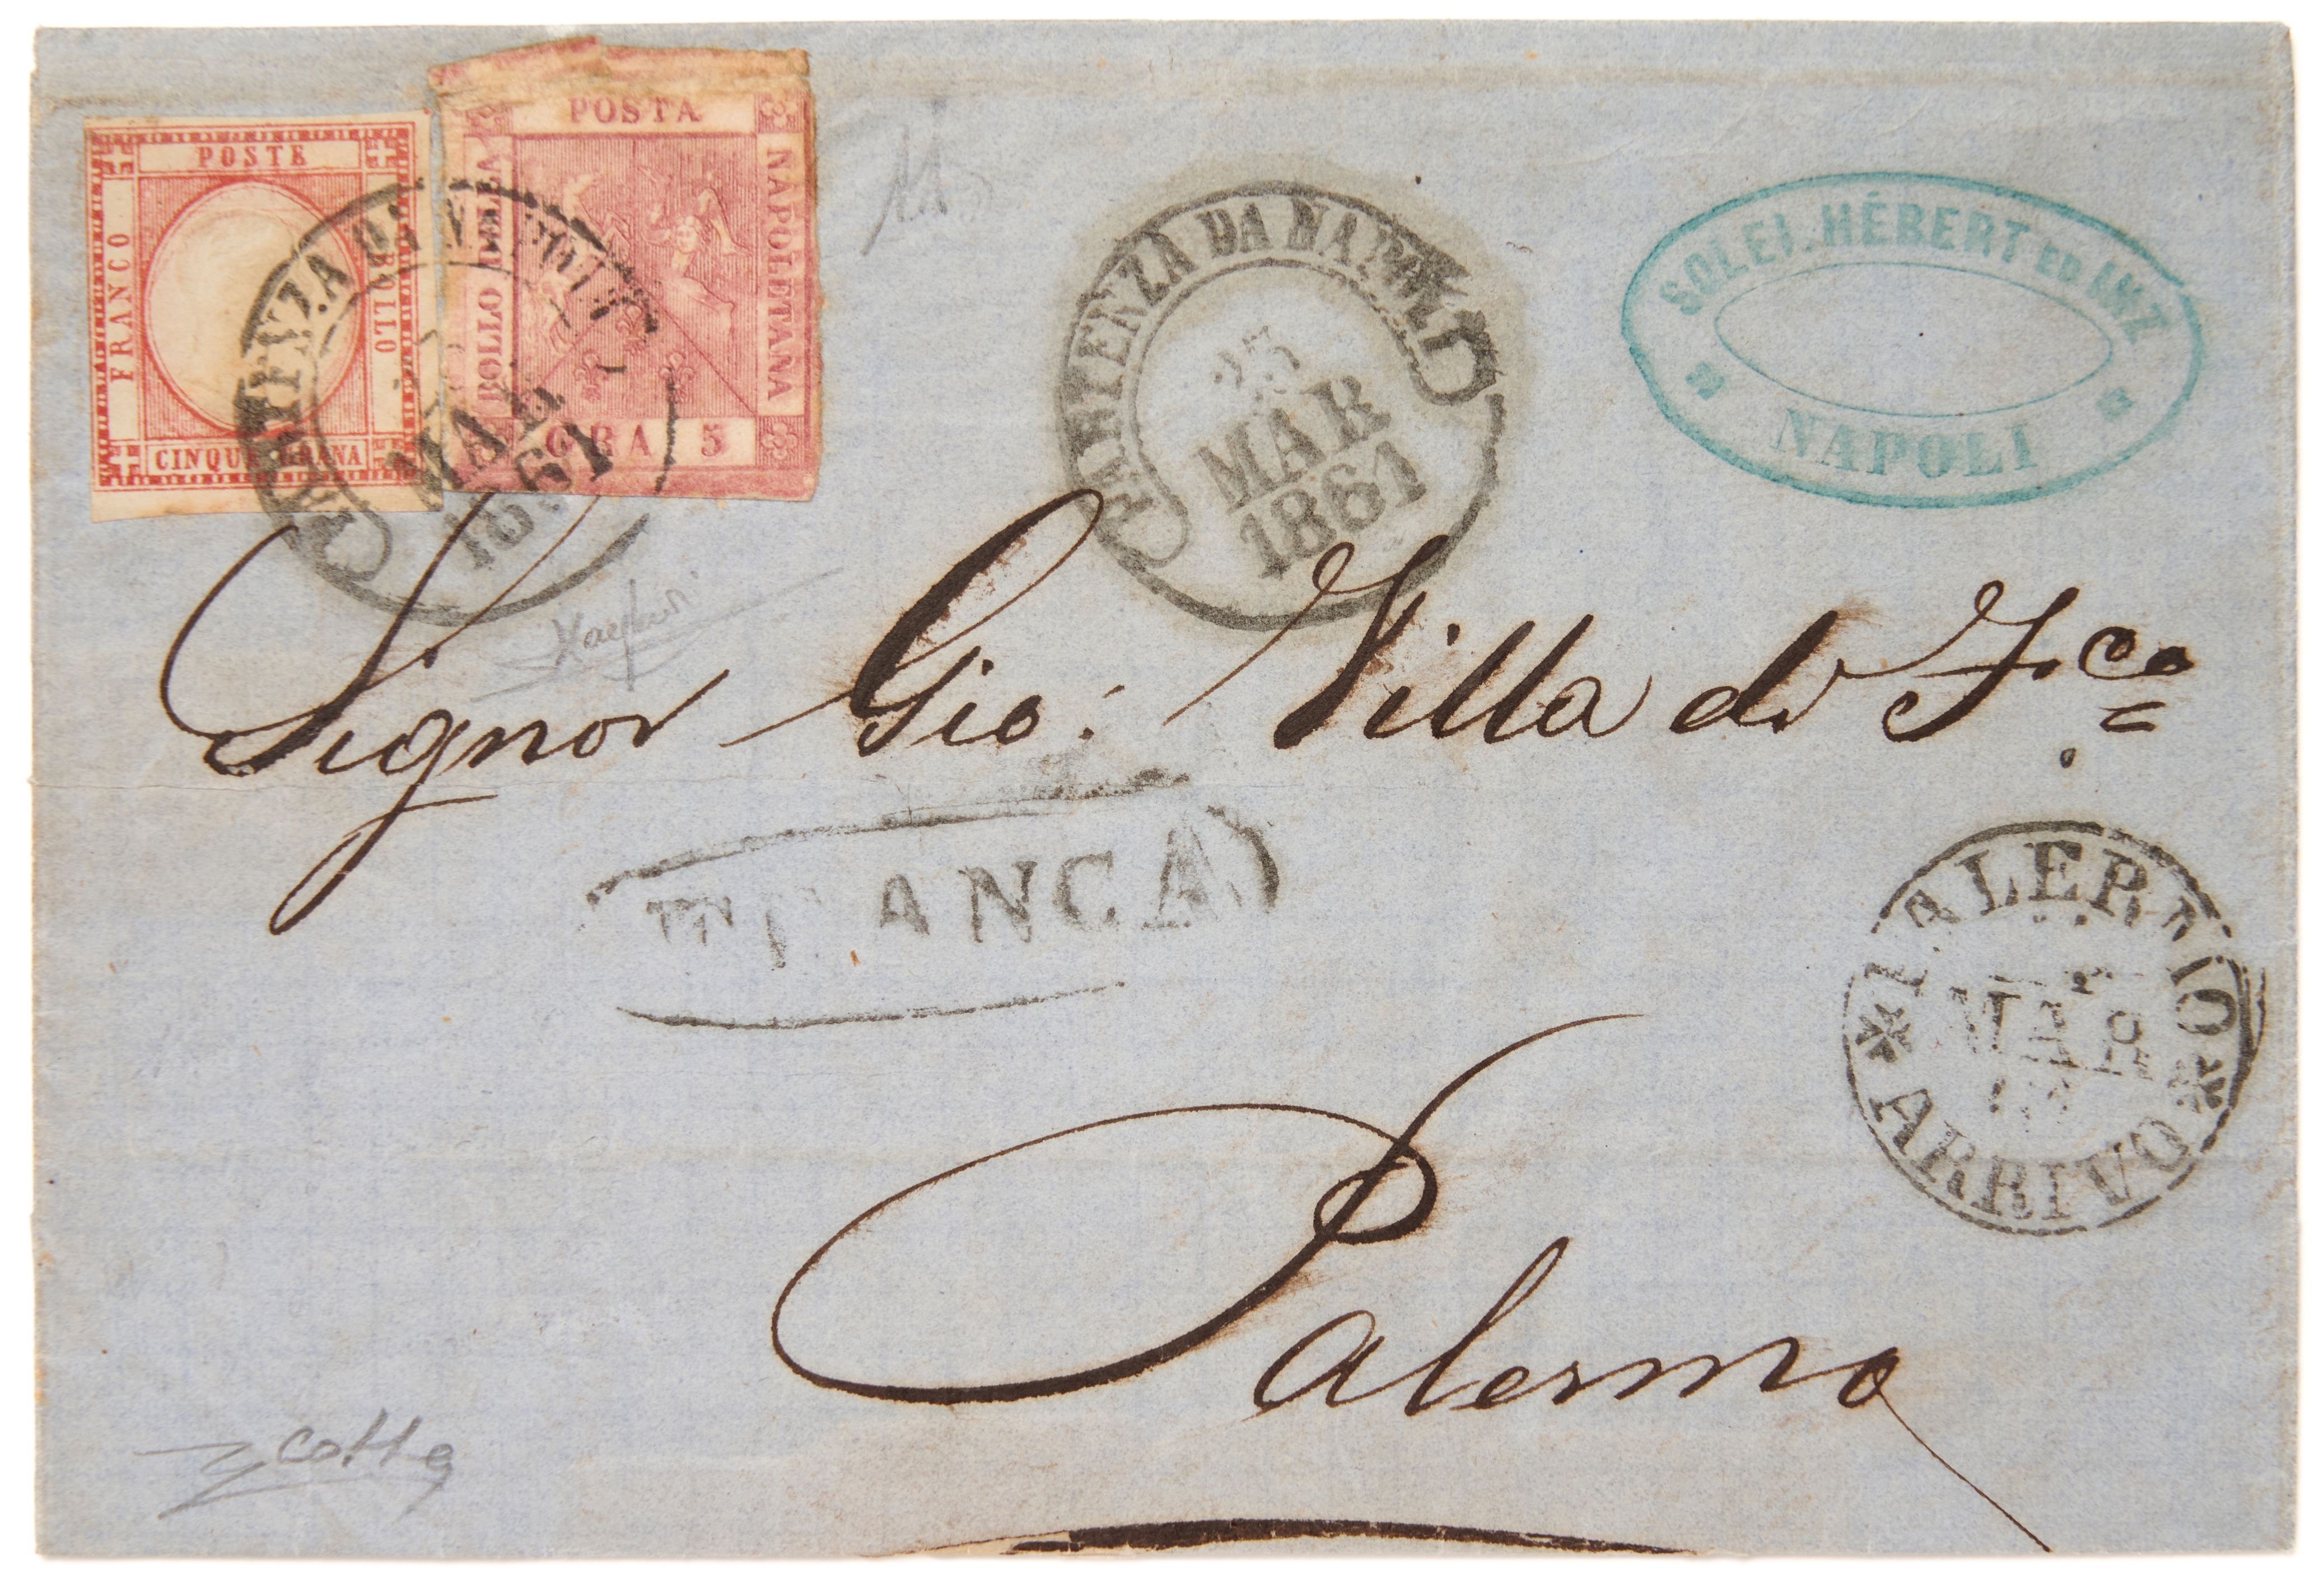 POSTE
FRANCO
BOLLO
CINQUE GRANA
POSTA
BOLLO DELLA
NAPOLETANA
GRA 5
PARTENZA DA NAPOLI
MAR
1861
PARTENZA DA NAPOLI
23
MAR
1861
SOLEI. HÉBERT ED
NAPOLI
Signor Gio: Villa di F.co
FRANCA
PALERMO
MAR
ARRIVO
Palermo